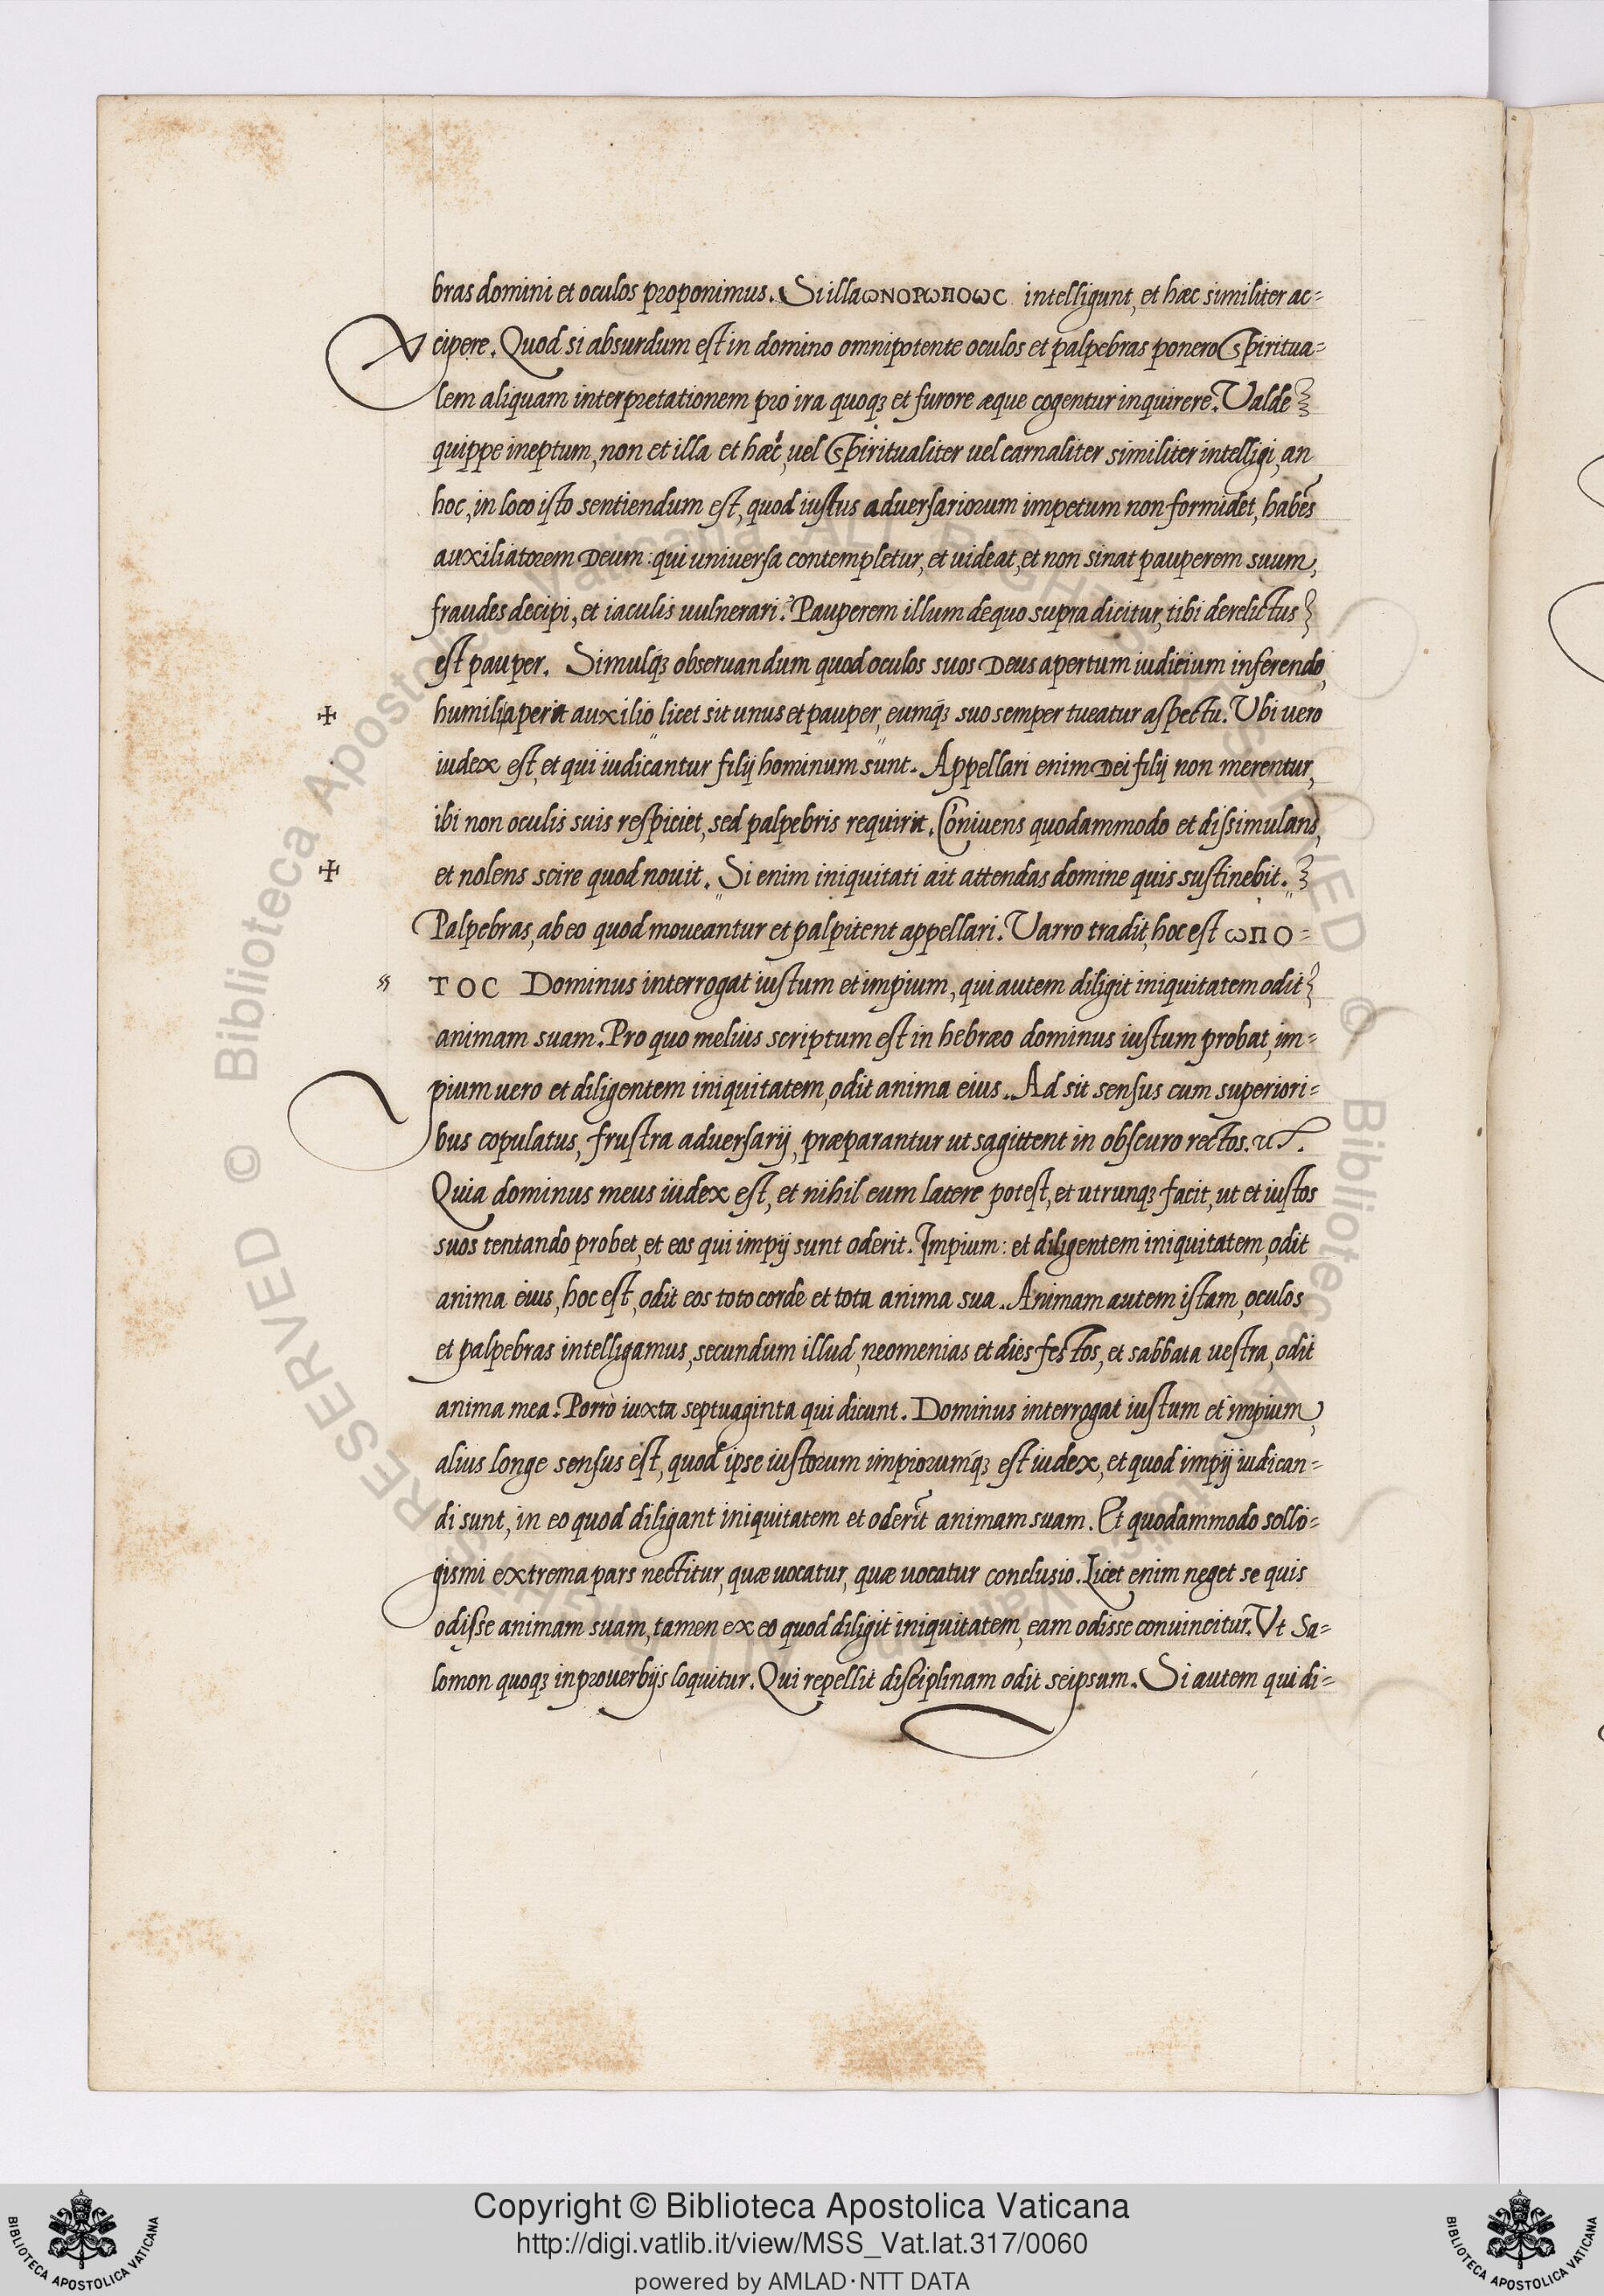 bras domini et oculos proponimus. Si illa ωΝΟΡωΠΟωC intelligunt, et hæc similiter ac=
cipere. Quod si absurdum est in domino omnipotente oculos et palpebras ponero Spiritua=
lem aliquam interpretationem pro ira quoqꝫ et furore æque cogentur inquirere. Valde
quippe ineptum, non et illa et hæc, uel Spiritualiter uel carnaliter similiter intelligi, an
hoc, in loco isto sentiendum est, quod iustus aduersariorum impetum non formidet, habẽs
auxiliatorem Deum: qui uniuersa contempletur, et uideat, et non sinat pauperem suum,
fraudes decipi, et iaculis uulnerari? Pauperem illum dequo supra dicitur, tibi derelictus
est pauper. Simulqꝫ obseruandum quod oculos suos Deus apertum iuditium inferendo,
✠ humili aperit auxilio licet sit unus et pauper, eumqꝫ suo semper tueatur aspectu. Vbi uero
iudex est, et qui iudicantur filij hominum sunt. Appellari enim Dei filij non merentur,
ibi non oculis suis respiciet, sed palpebris requirit. Coniuens quodammodo et dissimulans,
✠ et nolens scire quod nouit. Si enim iniquitati ait attendas domine quis sustinebit.
Palpebras, ab eo quod moueantur et palpitent appellari. Varro tradit, hoc est ωΠΟ=
" ΤΟC Dominus interrogat iustum et impium, qui autem diligit iniquitatem odit
animam suam. Pro quo melius scriptum est in hebræo dominus iustum probat, im=
pium uero et diligentem iniquitatem, odit anima eius. Ad sit sensus cum superiori=
bus copulatus, frustra aduersarij, præparantur ut sagittent in obscuro rectos.
Quia dominus meus iudex est, et nihil eum latere potest, et utrunqꝫ facit, ut et iustos
suos tentando probet, et eos qui impij sunt oderit. Impium: et diligentem iniquitatem, odit
anima eius, hoc est, odit eos toto corde et tota anima sua. Animam autem istam, oculos
et palpebras intelligamus, secundum illud, neomenias et dies festos, et sabbata uestra, odit
anima mea. Porrò iuxta septuaginta qui dicunt. Dominus interrogat iustum et impium,
alius longe sensus est, quod ipse iustorum impiorumqꝫ est iudex, et quod impij iudican=
di sunt, in eo quod diligant iniquitatem et oderĩt animam suam. Et quodammodo sollo=
gismi extrema pars nectitur, quæ uocatur, quæ uocatur conclusio. Licet enim neget se quis
odisse animam suam, tamen ex eo quod diligit iniquitatem, eam odisse conuincitur. Vt Sa=
lomon quoqꝫ in prouerbijs loquitur. Qui repellit disciplinam odit seipsum. Si autem qui di=
© Biblioteca Apostolica Vaticana
Copyright © Biblioteca Apostolica Vaticana
http://digi.vatlib.it/view/MSS_Vat.lat.317/0060
powered by AMLAD·NTT DATA
BIBLIOTECA APOSTOLICA VATICANA
BIBLIOTECA APOSTOLICA VATICANA